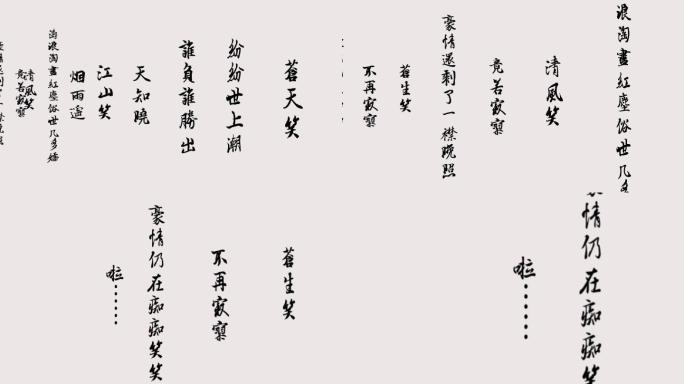 蒼天笑
紛紛世上潮
誰負誰勝出
天知曉
江山笑
烟雨遥
濤浪淘盡紅塵俗世几多嬌
清風笑
竟若寂寥
浪淘盡紅塵俗世几多
清風笑
竟若寂寥
豪情還剩了一襟晚照
蒼生笑
不再寂寥
蒼生笑
不再寂寥
豪情仍在痴痴笑笑
啦……
情仍在痴痴笑
啦……